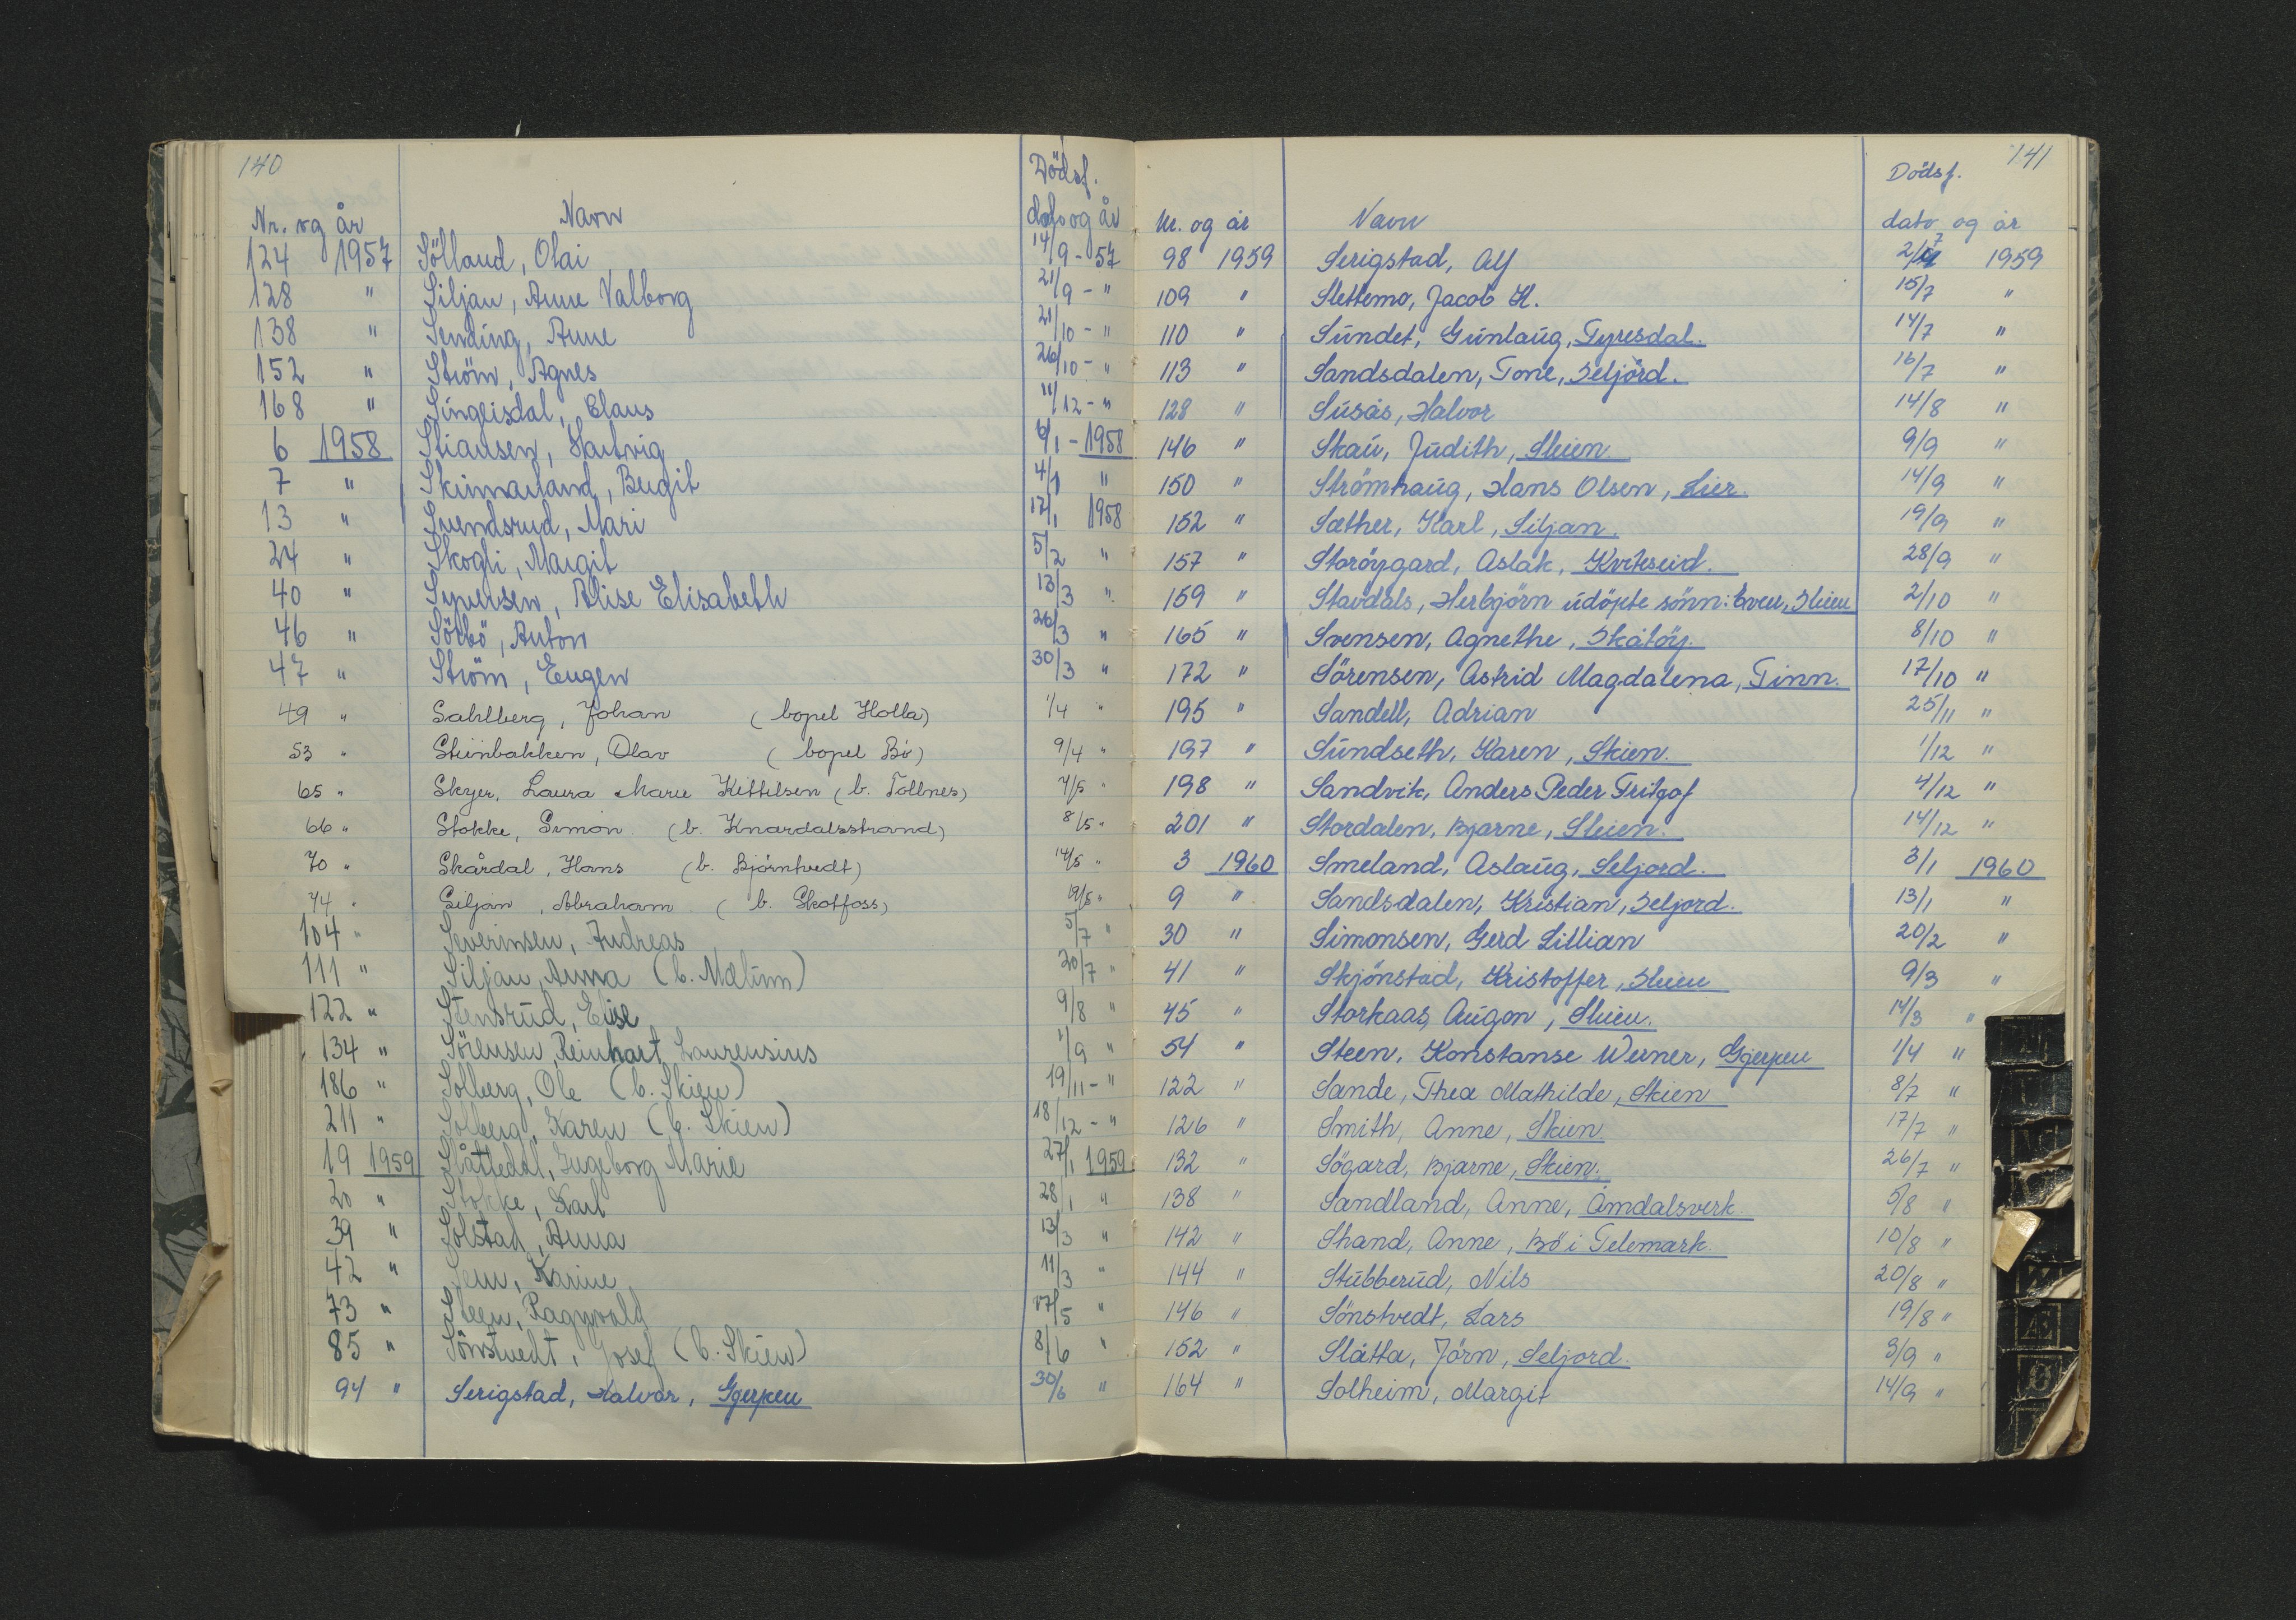 140
Dödsf.
Nr. og år Navn dato og år
124 1957 Sölland, Olai 14/9 - 57
128 " Siljan, Anne Valborg 21/9 - "
138 " Sending, Anne 21/10 - "
152 " Ström, Agnes 26/10 - "
168 " Singlisdal, Claus 11/12 - "
6 1958 Stiansen, Hartvig 6/1 - 1958
7 " Skinnarland, Bergit 4/1 "
13 " Svendsrud, Mari 17/1 1958
24 " Skogli, Margit 5/2 "
40 " Syversen, Alise Elisabeth 13/3 "
46 " Sörbö, Anton 26/3 "
47 " Ström, Eugen 30/3 "
49 " Sahlberg, Johan (bopel Holla) 1/4 "
53 " Steinbakken, Olav (bopel Bö) 9/4 "
65 " Skyer, Laura Marie Kittilsen (b. Tollnes) 7/5 "
66 " Stokke, Simon. (b. Knardalsstrand) 8/5 "
70 " Skårdal, Hans (b. Björntvedt) 14/5 "
74 " Siljan, Abraham (b. Skotfoss) 19/5 "
104 " Severinsen, Andreas 5/7 "
111 " Siljan, Anna (b. Mælum) 20/7 "
122 " Stensrud, Elise 9/8 "
134 " Sörensen, Reinhart Laurensius 1/9 "
186 " Solberg, Ole (b. Skien) 19/11 - "
211 " Solberg, Karen (b. Skien) 18/12 - "
19 1959 Slåttedal, Ingeborg Marie 27/1 1959
20 " Stokke, Karl 28/1 "
39 " Solstad, Anna 13/3 "
42 " Sem, Karine 11/3 "
73 " Steen, Ragnvald 17/5 "
85 " Sönstvedt, Josef (b. Skien) 8/6 "
94 " Serigstad, Halvor, Gjerpen 30/6 "
141
Dödsf.
Nr. og år Navn dato og år
98 1959 Serigstad, Alf 2/7 1959
109 " Slettemo, Jacob H. 15/7 "
110 " Sundet, Gunlaug, Tyresdal. 14/7 "
113 " Sandsdalen, Tone, Seljörd. 16/7 "
128 " Susås, Halvor 14/8 "
146 " Skau, Judith, Skien 9/9 "
150 " Strömhaug, Hans Olsen, Lier. 14/9 "
152 " Sæther, Karl, Siljan. 19/9 "
157 " Storöygard, Aslak, Kviteseid. 28/9 "
159 " Stavdals, Herbjörn udöpte sönn: Even, Skien 2/10 "
165 " Svensen, Agnethe, Skåtöy. 8/10 "
172 " Sörensen, Astrid Magdalena, Tinn. 17/10 "
195 " Sandell, Adrian 25/11 "
197 " Sundseth, Karen, Skien. 1/12 "
198 " Sandvik, Anders Peder Fritjof 4/12 "
201 " Stordalen, Bjarne, Skien. 14/12 "
3 1960 Smeland, Aslaug, Seljord. 3/1 1960
9 " Sandsdalen, Kristian, Seljord. 13/1 "
30 " Simonsen, Gerd Lillian 20/2 "
41 " Skjönstad, Kristoffer, Skien 9/3 "
45 " Storkaas, Augon, Skien. 14/3 "
54 " Steen, Konstanse Werner, Gjerpen 1/4 "
122 " Sande, Thea Mathilde, Skien 8/7 "
126 " Smith, Anne, Skien 17/7 "
132 " Sögard, Bjarne, Skien. 26/7 "
138 " Sandland, Anne, Åmdalsverk. 5/8 "
142 " Strand, Anne, Bö i Telemark. 10/8 "
144 " Stubberud, Nils 20/8 "
146 " Sönstvedt, Lars 19/8 "
152 " Slåtta, Jörn, Seljord. 3/9 "
164 " Solheim, Margit 14/9 "